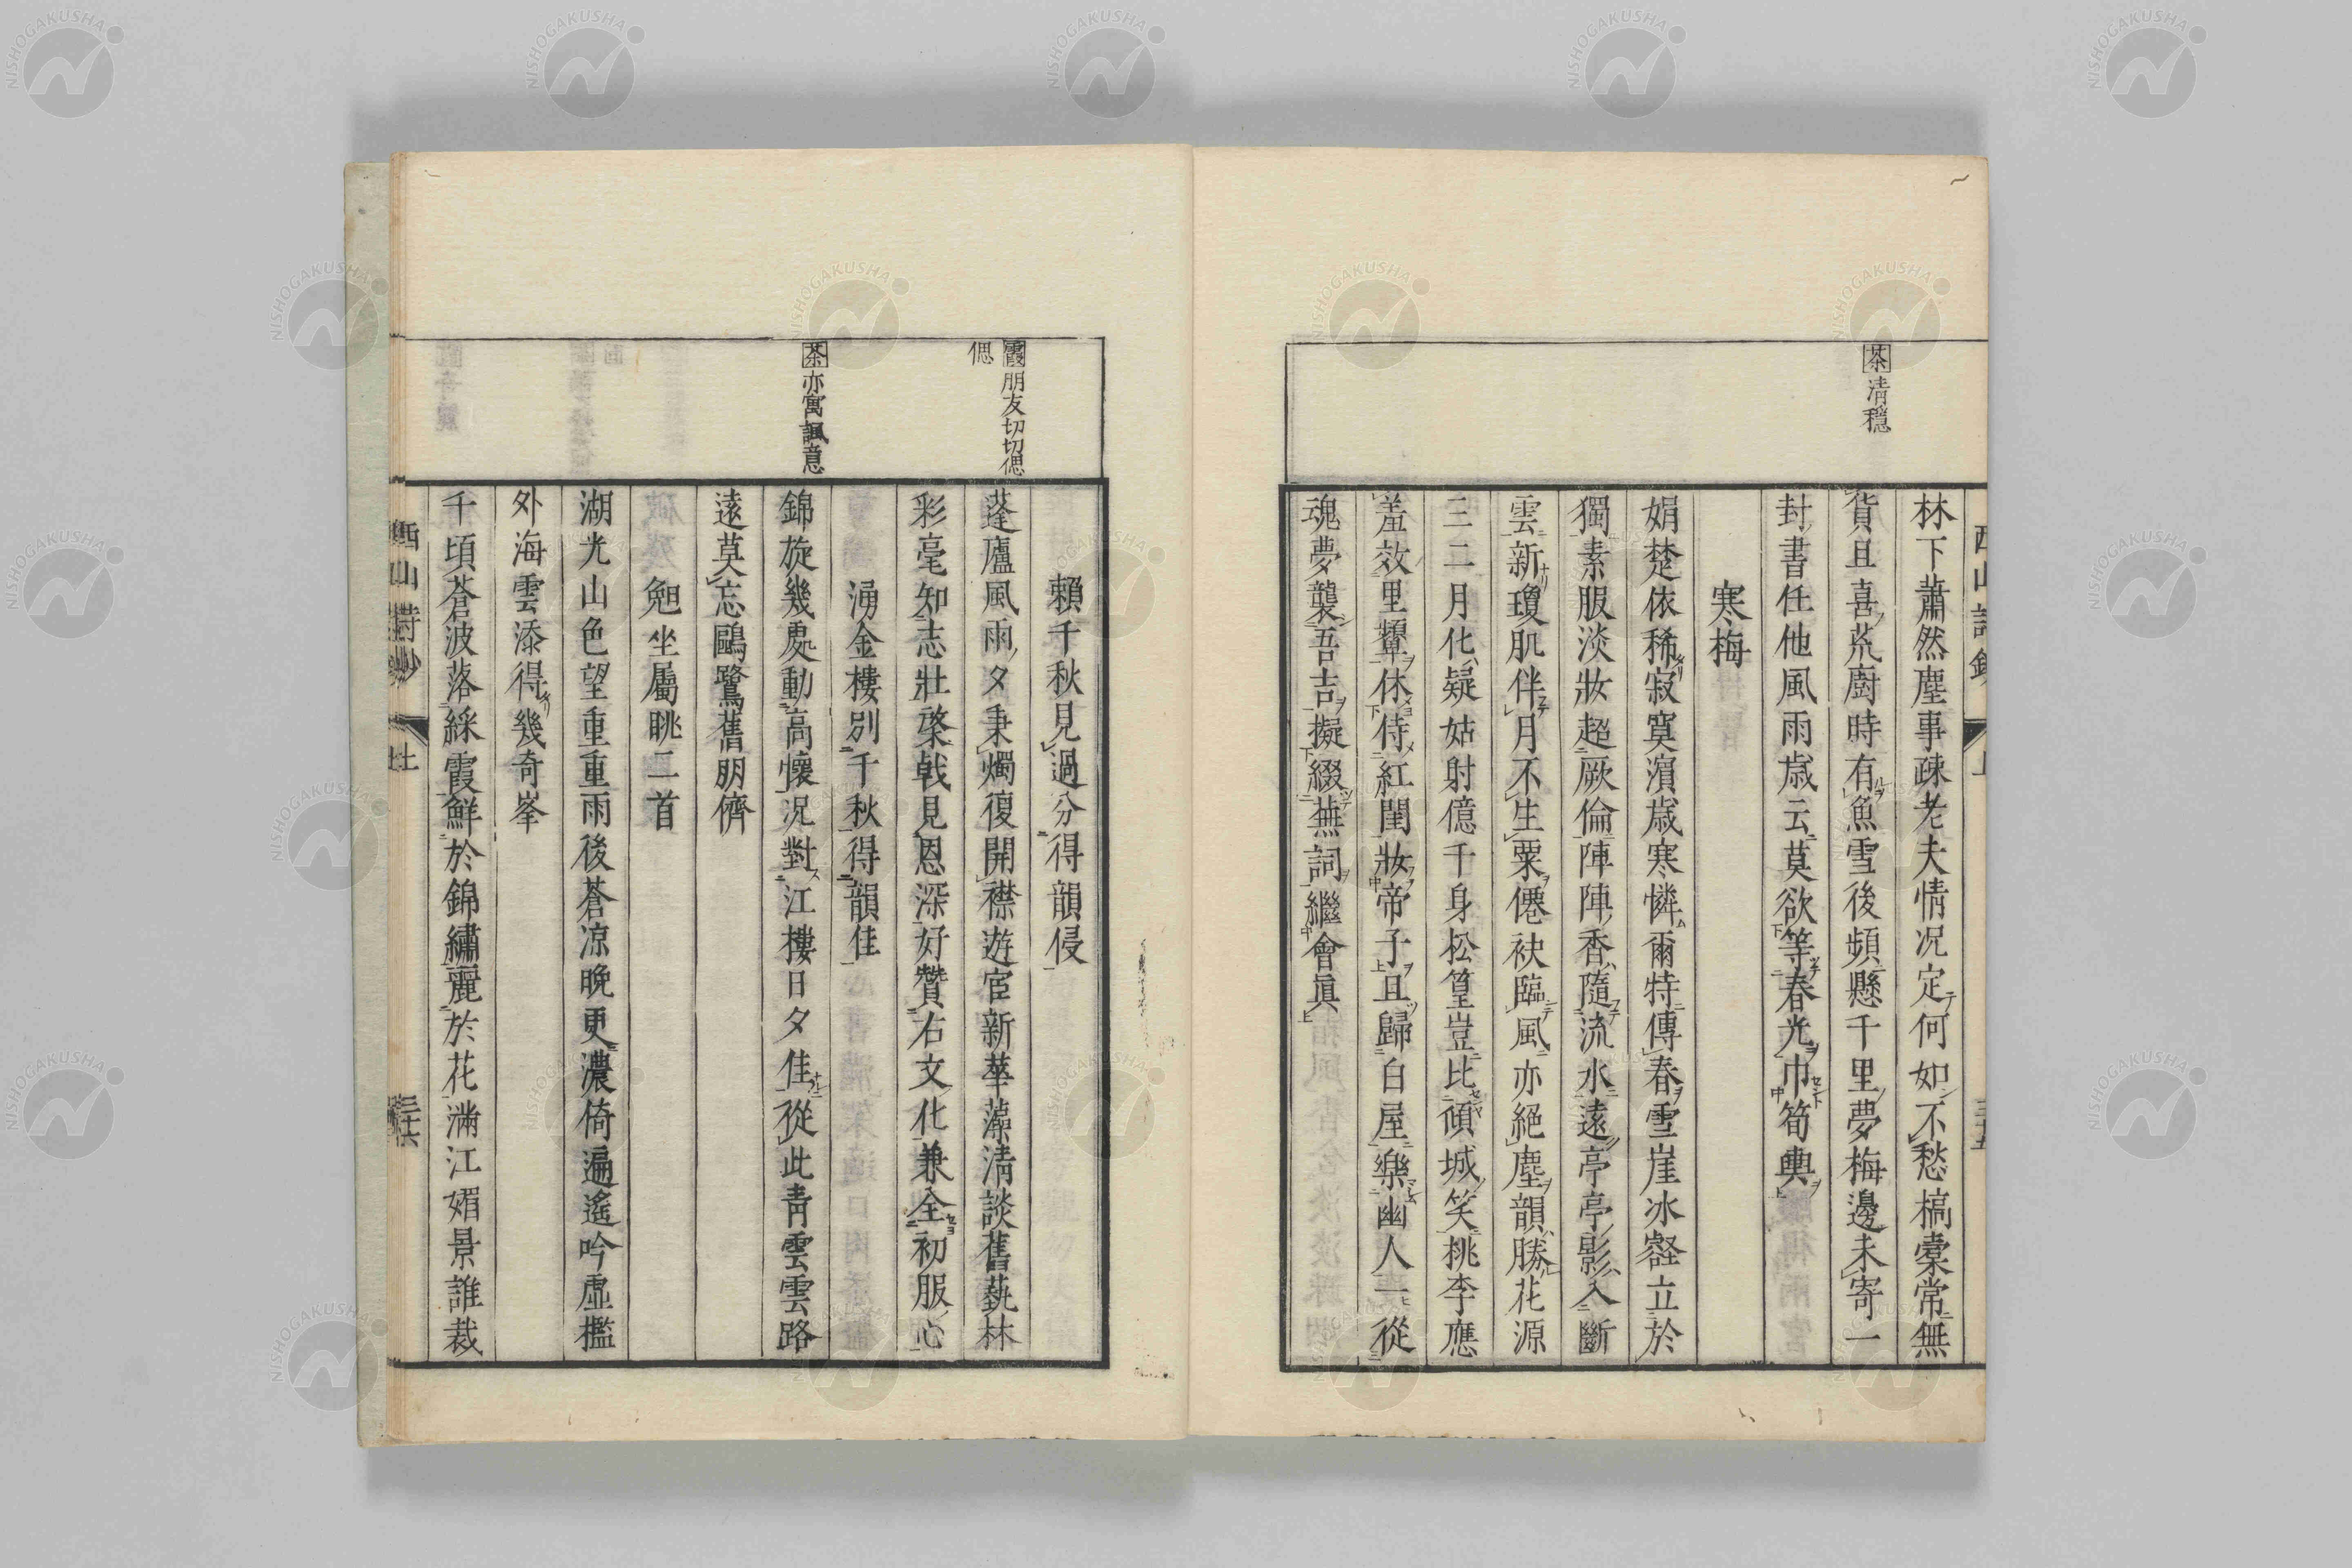 茶清穩
林下蕭然塵事疎老夫情況定何如不愁槁棄常無
貨且喜荒廚時有魚雪後頻懸千里夢梅邊未寄一
封書任他風雨歳云莫欲等春光巾筍輿
寒梅
娟楚依稀寂寞濵歳寒憐爾特傳春雪崖冰壑立於
獨素服淡妝超厥倫陣陣香隨流水遠亭亭影入斷
雲新瓊肌伴月不生粟僊袂臨風亦絕塵韻勝花源
三二月化疑姑射億千身松篁豈比傾城笑桃李應
羞效里顰休侍紅閨妝帝子且歸白屋樂幽人一從
魂夢襲吾吉擬綴蕪詞繼會眞
霞朋友切切偲
偲
茶亦寓諷意
賴千秋見過分得韻侵
蓬廬風雨夕秉燭復開襟遊宦新華藻清談舊藝林
彩毫知志壯棨戟見恩深好贊右文化兼全初服心
湧金樓別千秋得韻佳
錦旋幾處動高懷況對江樓日夕佳從此靑雲雲路
遠莫忘鷗鷺舊朋儕
晚坐屬眺二首
湖光山色望重重雨後蒼涼晚更濃倚遍遙吟虛檻
外海雲添得幾奇峯
千頃蒼波落綵霞鮮於錦繡麗於花滿江媚景誰裁
西山詩鈔 上 三十六
NISHOGAKUSHA